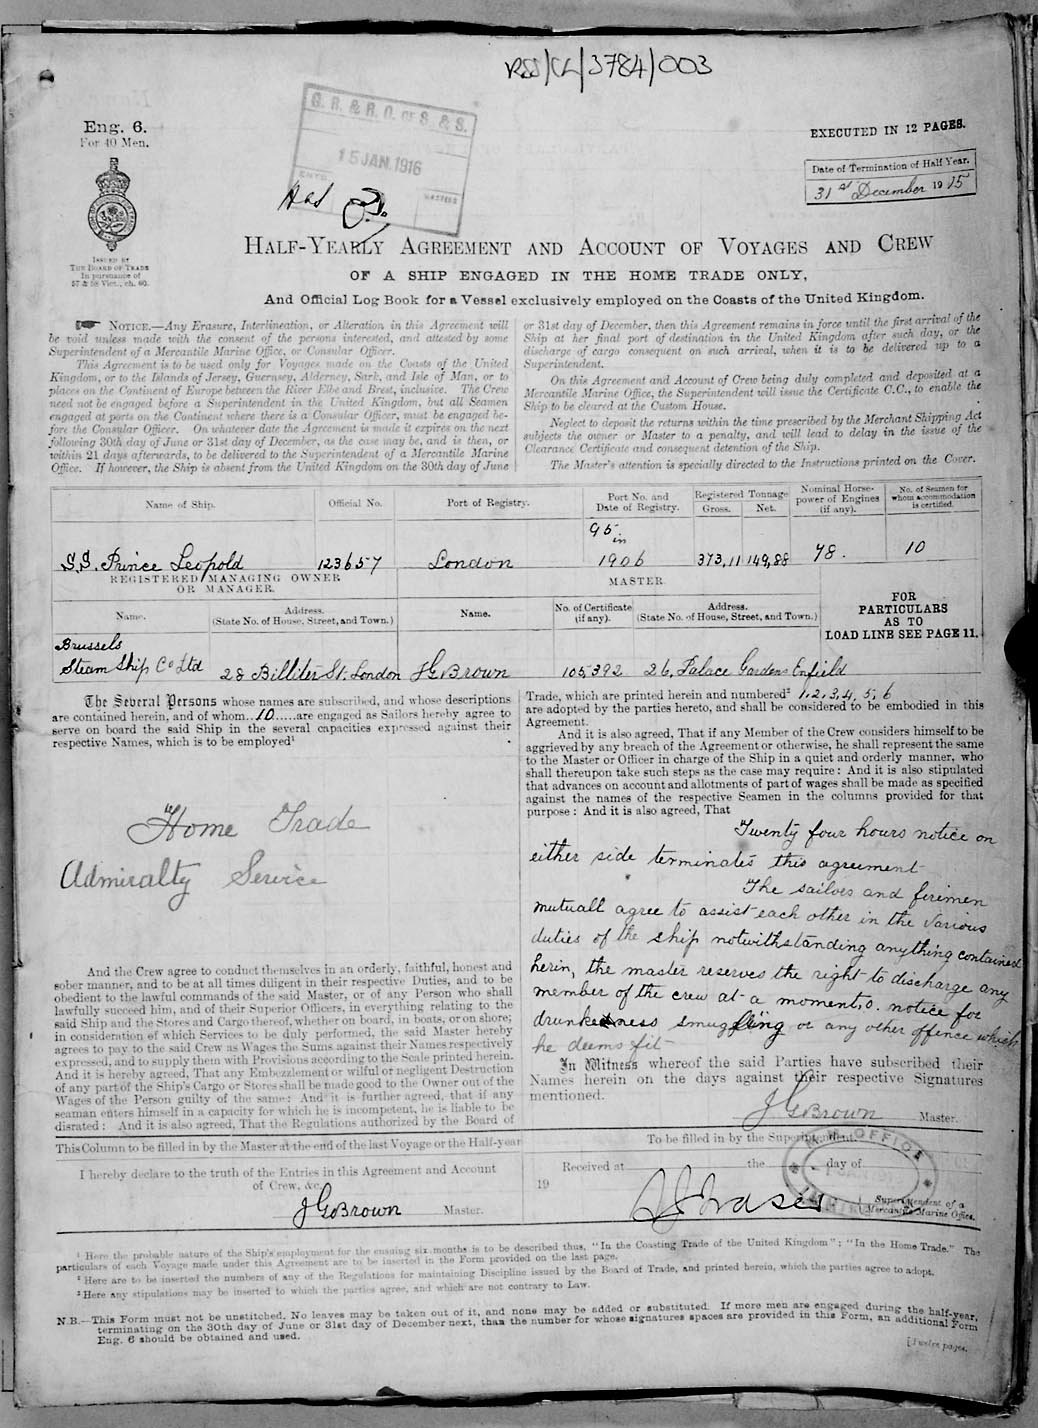 RSS/CL/3784/003
Eng. 6.
For 40 Men.
ISSUED BY
THE BOARD OF TRADE
In pursuance of
57 & 58 Vict., ch. 60.
G. R. & R. O. OF S. & S.
15 JAN. 1916
EXECUTED IN 12 PAGES.
Date of Termination of Half Year.
31st December 1915
HALF-YEARLY AGREEMENT AND ACCOUNT OF VOYAGES AND CREW
OF A SHIP ENGAGED IN THE HOME TRADE ONLY,
And Official Log Book for a Vessel exclusively employed on the Coasts of the United Kingdom.
NOTICE.—Any Erasure, Interlineation, or Alteration in this Agreement will
be void unless made with the consent of the persons interested, and attested by some
Superintendent of a Mercantile Marine Office, or Consular Officer.
This Agreement is to be used only for Voyages made on the Coasts of the United
Kingdom, or to the Islands of Jersey, Guernsey, Alderney, Sark, and Isle of Man, or to
places on the Continent of Europe between the River Elbe and Brest, inclusive. The Crew
need not be engaged before a Superintendent in the United Kingdom, but all Seamen
engaged at ports on the Continent where there is a Consular Officer, must be engaged be-
fore the Consular Officer. On whatever date the Agreement is made it expires on the next
following 30th day of June or 31st day of December, as the case may be, and is then, or
within 21 days afterwards, to be delivered to the Superintendent of a Mercantile Marine
Office. If however, the Ship is absent from the United Kingdom on the 30th day of June
or 31st day of December, then this Agreement remains in force until the first arrival of the
Ship at her final port of destination in the United Kingdom after such day, or the
discharge of cargo consequent on such arrival, when it is to be delivered up to a
Superintendent.
On this Agreement and Account of Crew being duly completed and deposited at a
Mercantile Marine Office, the Superintendent will issue the Certificate C.C., to enable the
Ship to be cleared at the Custom House.
Neglect to deposit the returns within the time prescribed by the Merchant Shipping Act
subjects the owner or Master to a penalty, and will lead to delay in the issue of the
Clearance Certificate and consequent detention of the Ship.
The Master's attention is specially directed to the Instructions printed on the Cover.
Name of Ship. Official No. Port of Registry. Port No. and Date of Registry. Registered Tonnage Gross. Net. Nominal Horse-power of Engines (if any). No. of Seamen for whom accommodation is certified.
S.S. Prince Leopold 123657 London 95 in 1906 373,11 149,88 78. 10
REGISTERED MANAGING OWNER
OR MANAGER.
MASTER
FOR
PARTICULARS
AS TO
LOAD LINE SEE PAGE 11.
Name. Address. (State No. of House, Street, and Town.) Name. No. of Certificate (if any). Address. (State No. of House, Street, and Town.)
Brussels
Steam Ship Co Ltd 28 Billiter St. London J G Brown 105,392 26, Palace Gardens Enfield
The Several Persons whose names are subscribed, and whose descriptions
are contained herein, and of whom 10 are engaged as Sailors hereby agree to
serve on board the said Ship in the several capacities expressed against their
respective Names, which is to be employed¹
Home Trade
Admiralty Service
And the Crew agree to conduct themselves in an orderly, faithful, honest and
sober manner, and to be at all times diligent in their respective Duties, and to be
obedient to the lawful commands of the said Master, or of any Person who shall
lawfully succeed him, and of their Superior Officers, in everything relating to the
said Ship and the Stores and Cargo thereof, whether on board, in boats, or on shore;
in consideration of which Services to be duly performed, the said Master hereby
agrees to pay to the said Crew as Wages the Sums against their Names respectively
expressed, and to supply them with Provisions according to the Scale printed herein.
And it is hereby agreed, That any Embezzlement or wilful or negligent Destruction
of any part of the Ship's Cargo or Stores shall be made good to the Owner out of the
Wages of the Person guilty of the same: And it is further agreed, that if any
seaman enters himself in a capacity for which he is incompetent, he is liable to be
disrated: And it is also agreed, That the Regulations authorized by the Board of
Trade, which are printed herein and numbered² 1, 2, 3, 4, 5, 6
are adopted by the parties hereto, and shall be considered to be embodied in this
Agreement.
And it is also agreed, That if any Member of the Crew considers himself to be
aggrieved by any breach of the Agreement or otherwise, he shall represent the same
to the Master or Officer in charge of the Ship in a quiet and orderly manner, who
shall thereupon take such steps as the case may require: And it is also stipulated
that advances on account and allotments of part of wages shall be made as specified
against the names of the respective Seamen in the columns provided for that
purpose: And it is also agreed, That
Twenty four hours notice on
either side terminates this agreement
The sailors and firemen
mutuall agree to assist each other in the various
duties of the ship notwithstanding anything contained
herin, the master reserves the right to discharge any
member of the crew at a moment,s. notice for
drunkedness smuggling or any other offence which
he deems fit
In Witness whereof the said Parties have subscribed their
Names herein on the days against their respective Signatures
mentioned.
J G Brown Master.
This Column to be filled in by the Master at the end of the last Voyage or the Half-year
I hereby declare to the truth of the Entries in this Agreement and Account
of Crew, &c.
J G Brown Master.
To be filled in by the Superintendent.
Received at the day of
19
Superintendent of a
Mercantile Marine Office.
M. M. OFFICE
¹ Here the probable nature of the Ship's employment for the ensuing six months is to be described thus, "In the Coasting Trade of the United Kingdom"; "In the Home Trade." The
particulars of each Voyage made under this Agreement are to be inserted in the Form provided on the last page.
² Here are to be inserted the numbers of any of the Regulations for maintaining Discipline issued by the Board of Trade, and printed herein, which the parties agree to adopt.
³ Here any stipulations may be inserted to which the parties agree, and which are not contrary to Law.
N.B.—This Form must not be unstitched. No leaves may be taken out of it, and none may be added or substituted. If more men are engaged during the half-year,
terminating on the 30th day of June or 31st day of December next, than the number for whose signatures spaces are provided in this Form, an additional Form
Eng. 6 should be obtained and used.
[Twelve pages.